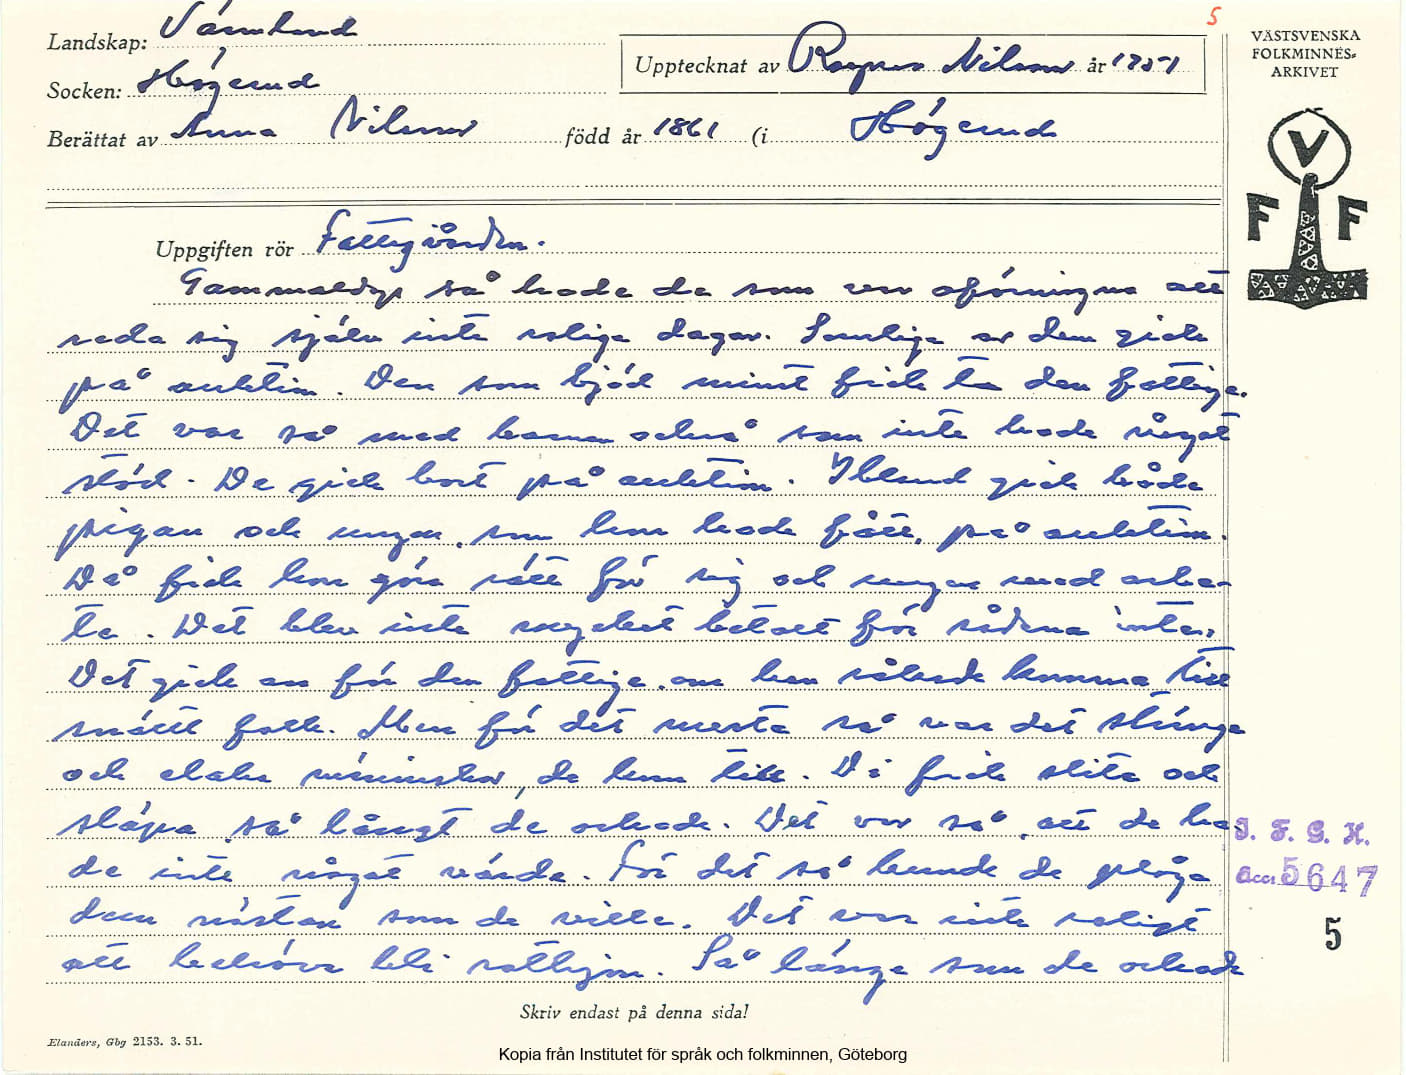 5
Landskap: Värmland
Socken: Högerud
Upptecknat av Ragnar Nilsson år 1951
Berättat av Anna Nilsson född år 1861 (i Högerud
VÄSTSVENSKA
FOLKMINNES-
ARKIVET
V
F F
Uppgiften rör Fattigvården.
Gammaldags så hade de som var oförmögna att
reda sig själv inte roliga dagar. Somliga av dem gick
på auktion. Den som bjöd minst fick ta den fattige.
Det var så med barnen också som inte hade något
stöd. De gick bort på auktion. Ibland gick både
pigan och ungen, som hon hade fått, på auktion.
Då fick hon göra rätt för sig och ungen med arbe-
te. Det blev inte mycket betalt för sådana inte.
Det gick an för den fattige, om han råkade komma till
snällt folk. Men för det mesta så var det stränga
och elaka människor, de kom till. De fick slita och
släpa, så långt de orkade. Det var så, att de ha-
de inte något värde. För det så kunde de plåga
dem nästan som de ville. Det var inte roligt
att behöva bli rothjon. Så länge som de orkade
I. F. G. H.
acc. 5647
5
Skriv endast på denna sida!
Elanders, Gbg 2153. 3. 51.
Kopia från Institutet för språk och folkminnen, Göteborg